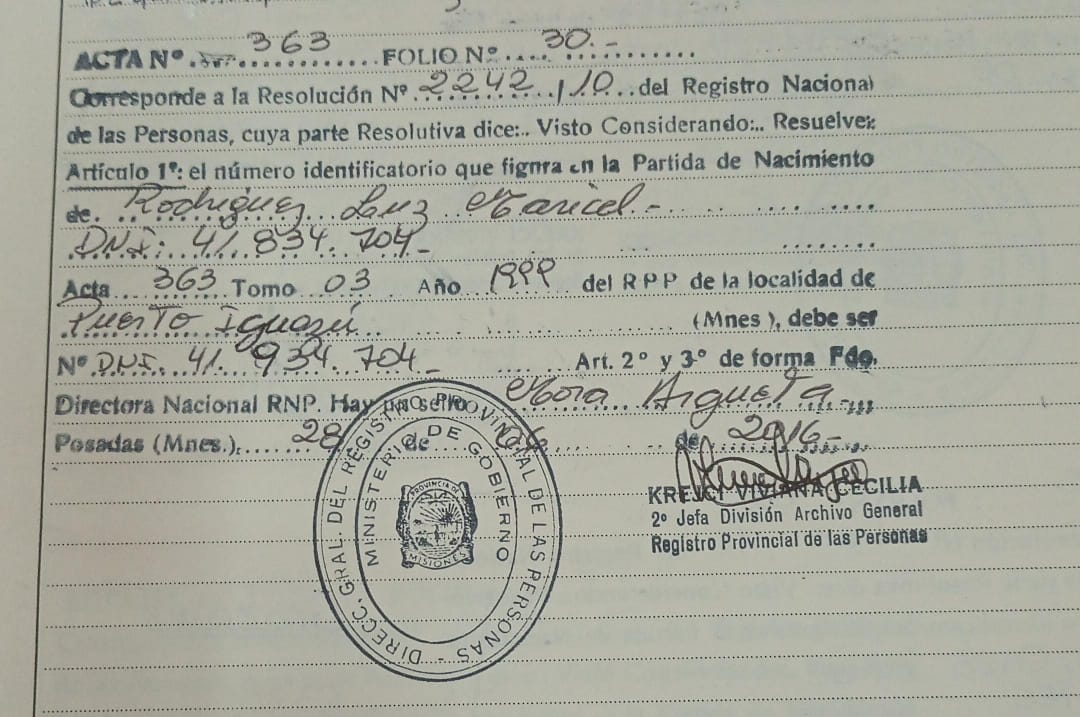 ACTA Nº 363 FOLIO Nº 30.-
Corresponde a la Resolución Nº 2242/10 del Registro Nacional
de las Personas, cuya parte Resolutiva dice:.. Visto Considerando:.. Resuelve:
Artículo 1º: el número identificatorio que figura en la Partida de Nacimiento
de Rodriguez Luz Maricel.-
D.N.I: 41.834.704-
Acta 363 Tomo 03 Año 1999 del RPP de la localidad de
Puerto Iguazú (Mnes), debe ser
Nº D.N.I. 41.934.704- Art. 2º y 3º de forma Fdo.
Directora Nacional RNP. Hay un sello Mora Argueta-
Posadas (Mnes.): 28 de 06 de 2016-
DIRECC. GRAL. DEL REGISTRO PROVINCIAL DE LAS PERSONAS -
MINISTERIO DE GOBIERNO
PROVINCIA DE
MISIONES
KREJCI VIVIANA CECILIA
2º Jefa División Archivo General
Registro Provincial de las Personas